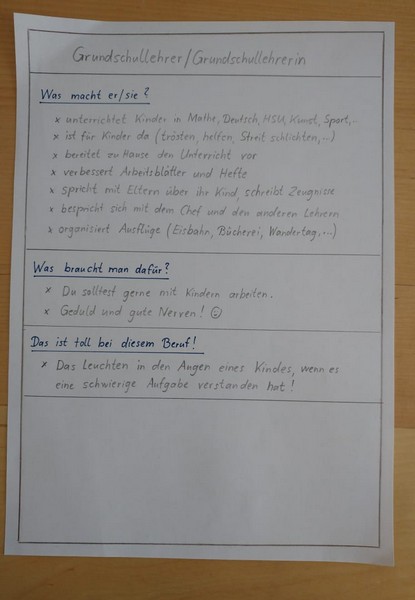 Grundschullehrer/Grundschullehrerin
Was macht er/sie?
x unterrichtet Kinder in Mathe, Deutsch, HSU, Kunst, Sport,...
x ist für Kinder da (trösten, helfen, Streit schlichten,...)
x bereitet zu Hause den Unterricht vor
x verbessert Arbeitsblätter und Hefte
x spricht mit Eltern über ihr Kind, schreibt Zeugnisse
x bespricht sich mit dem Chef und den anderen Lehrern
x organisiert Ausflüge (Eisbahn, Bücherei, Wandertag,...)
Was braucht man dafür?
x Du solltest gerne mit Kindern arbeiten.
x Geduld und gute Nerven! ☺
Das ist toll bei diesem Beruf!
x Das Leuchten in den Augen eines Kindes, wenn es
eine schwierige Aufgabe verstanden hat!